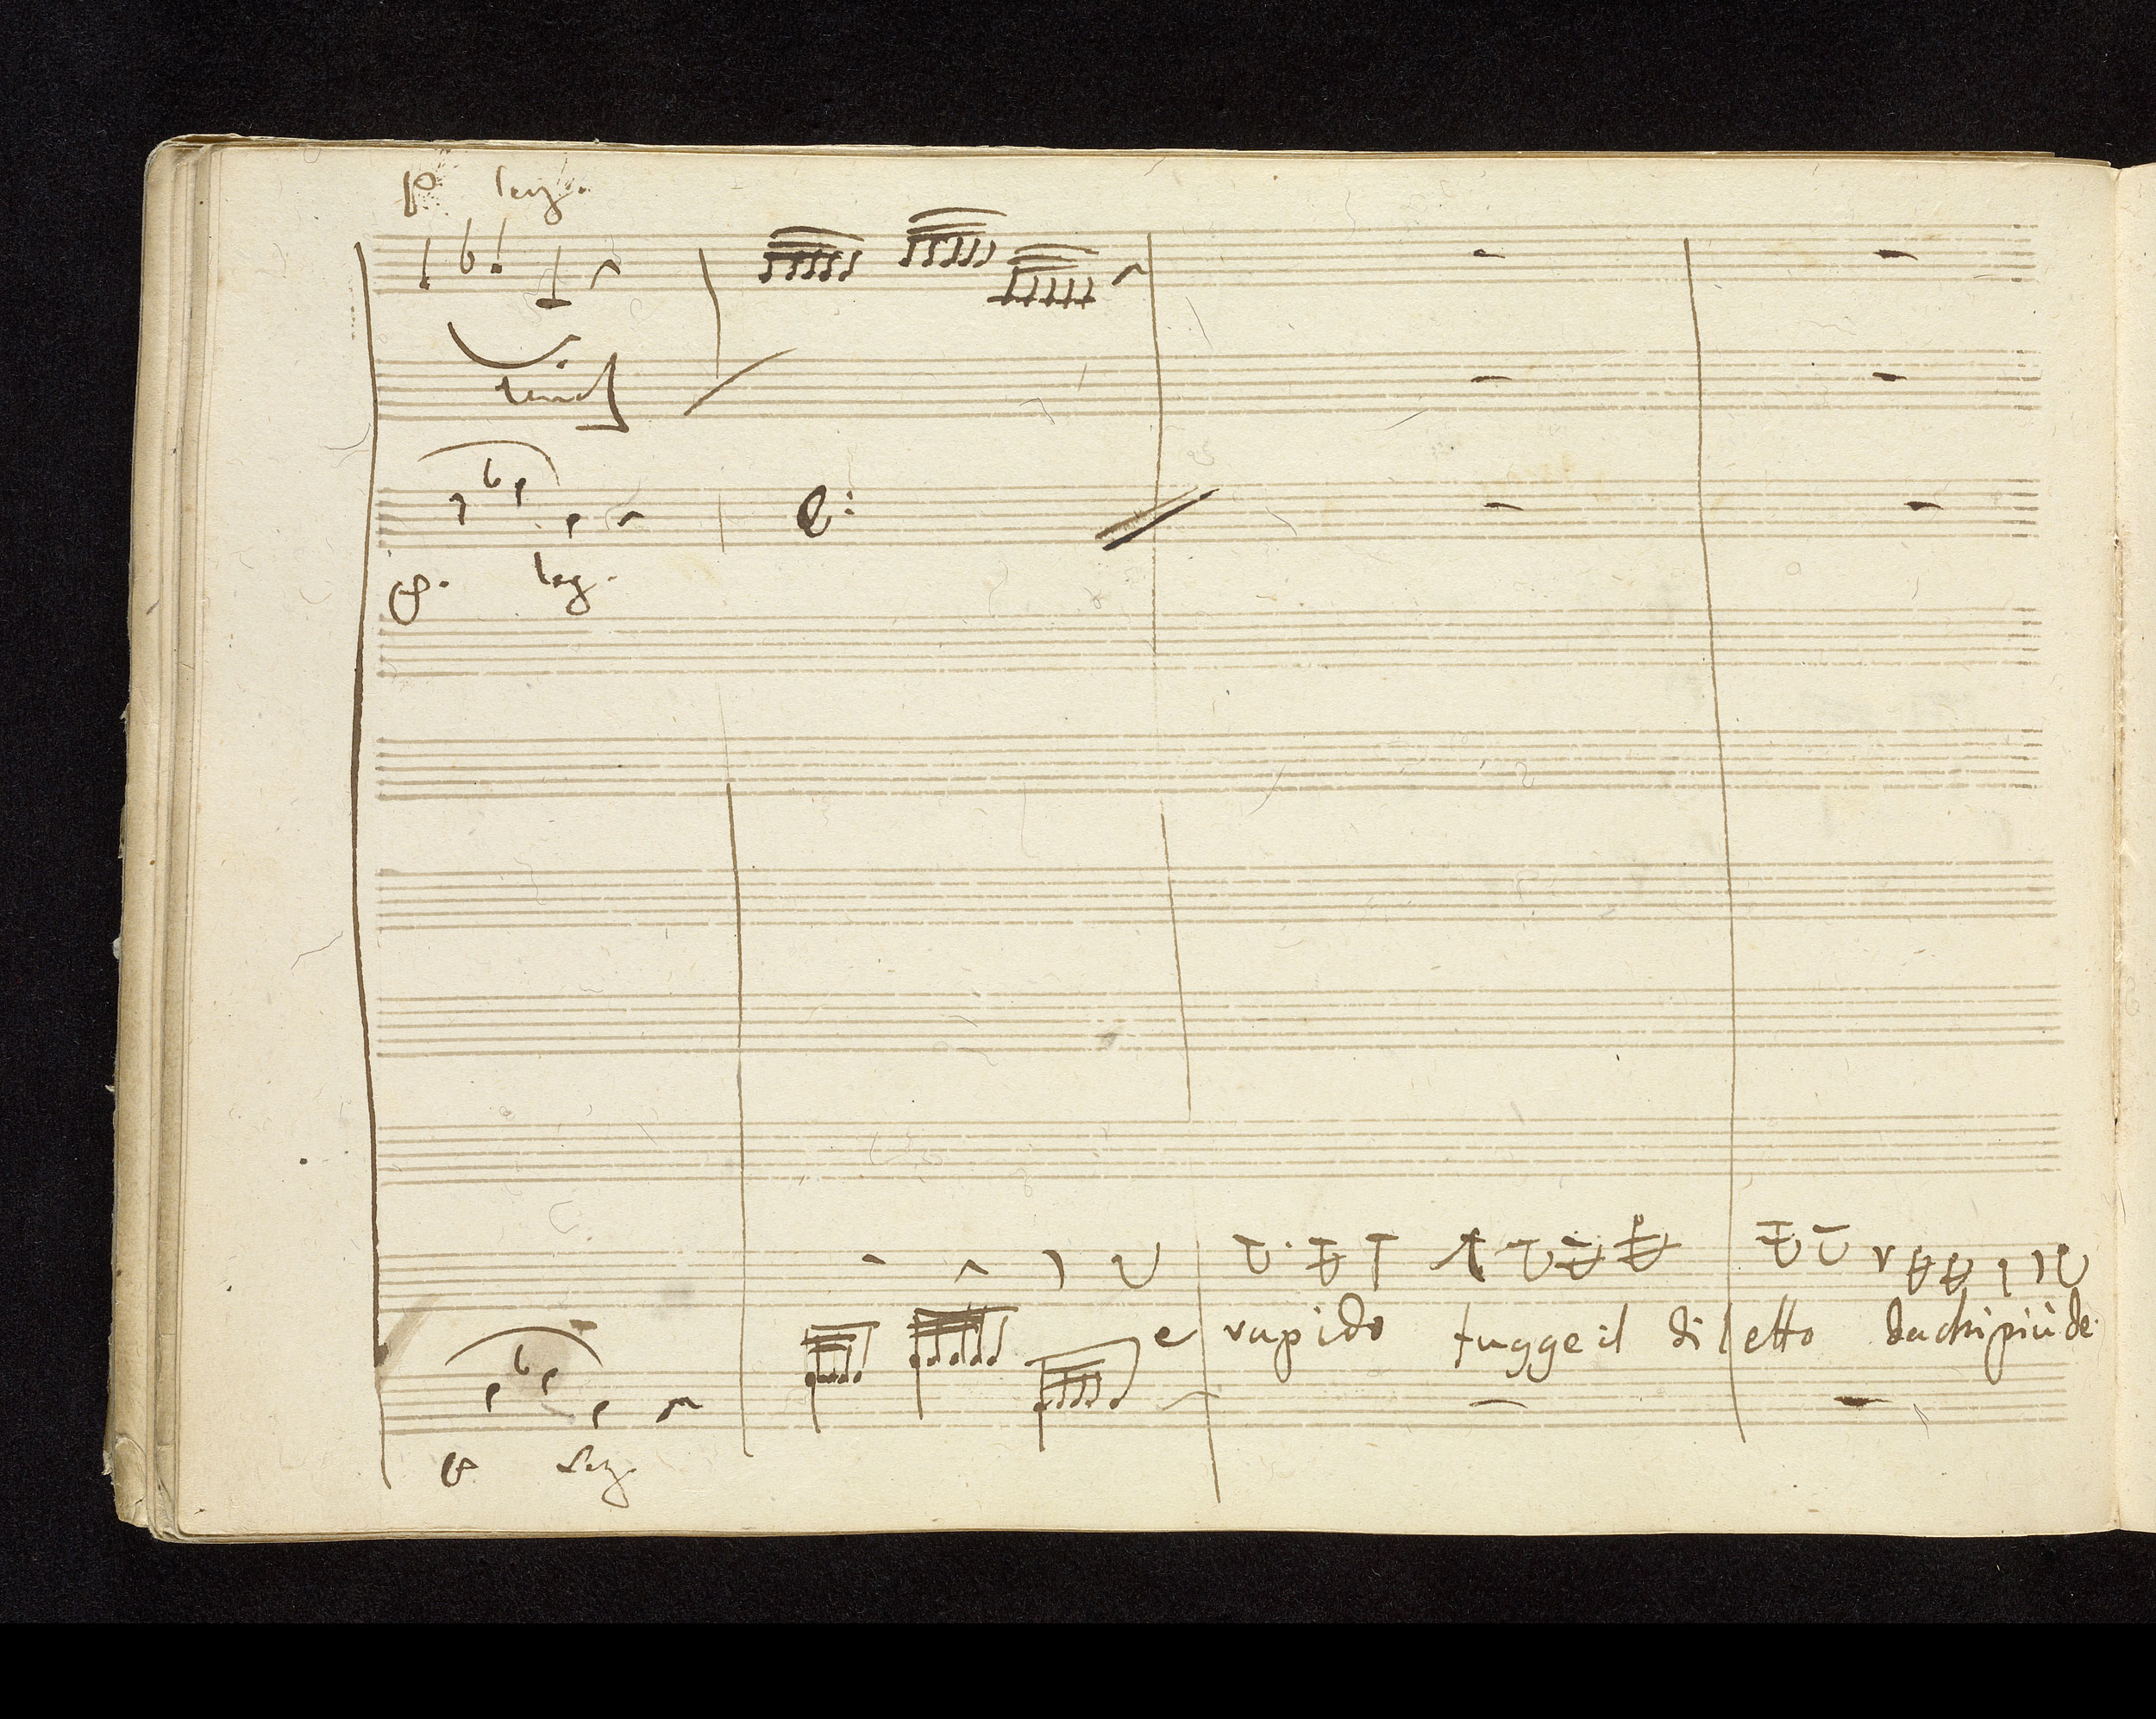 p leg.
unis
p. leg.
e rapido fugge il diletto da chi più de-
p leg.